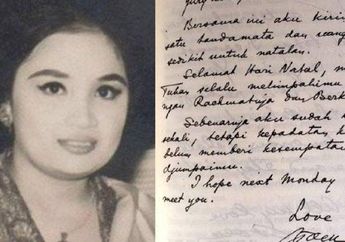 Bersama ini aku kirim
satu tandamata dan uang
sedikit untuk natalan.
Selamat Hari Natal,
Tuhan selalu melimpahimu
Rachmatnja dan Berk
Sebenarnja aku sudah
sekali, tetapi kepadatan
belum memberi kesempatan
djumpaimu.
I hope next Monday
meet you.
Love